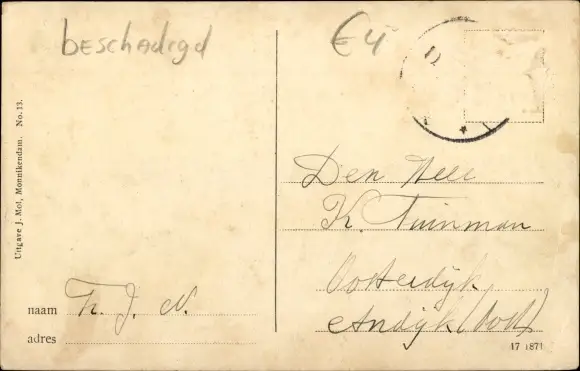 beschadigd
€4
Uitgave J. Mol, Monnikendam. No. 13.
Den Heer
K. Tuinman
Oosterdijk
Andijk (Oost)
naam Th. J. N.
adres
17 1871